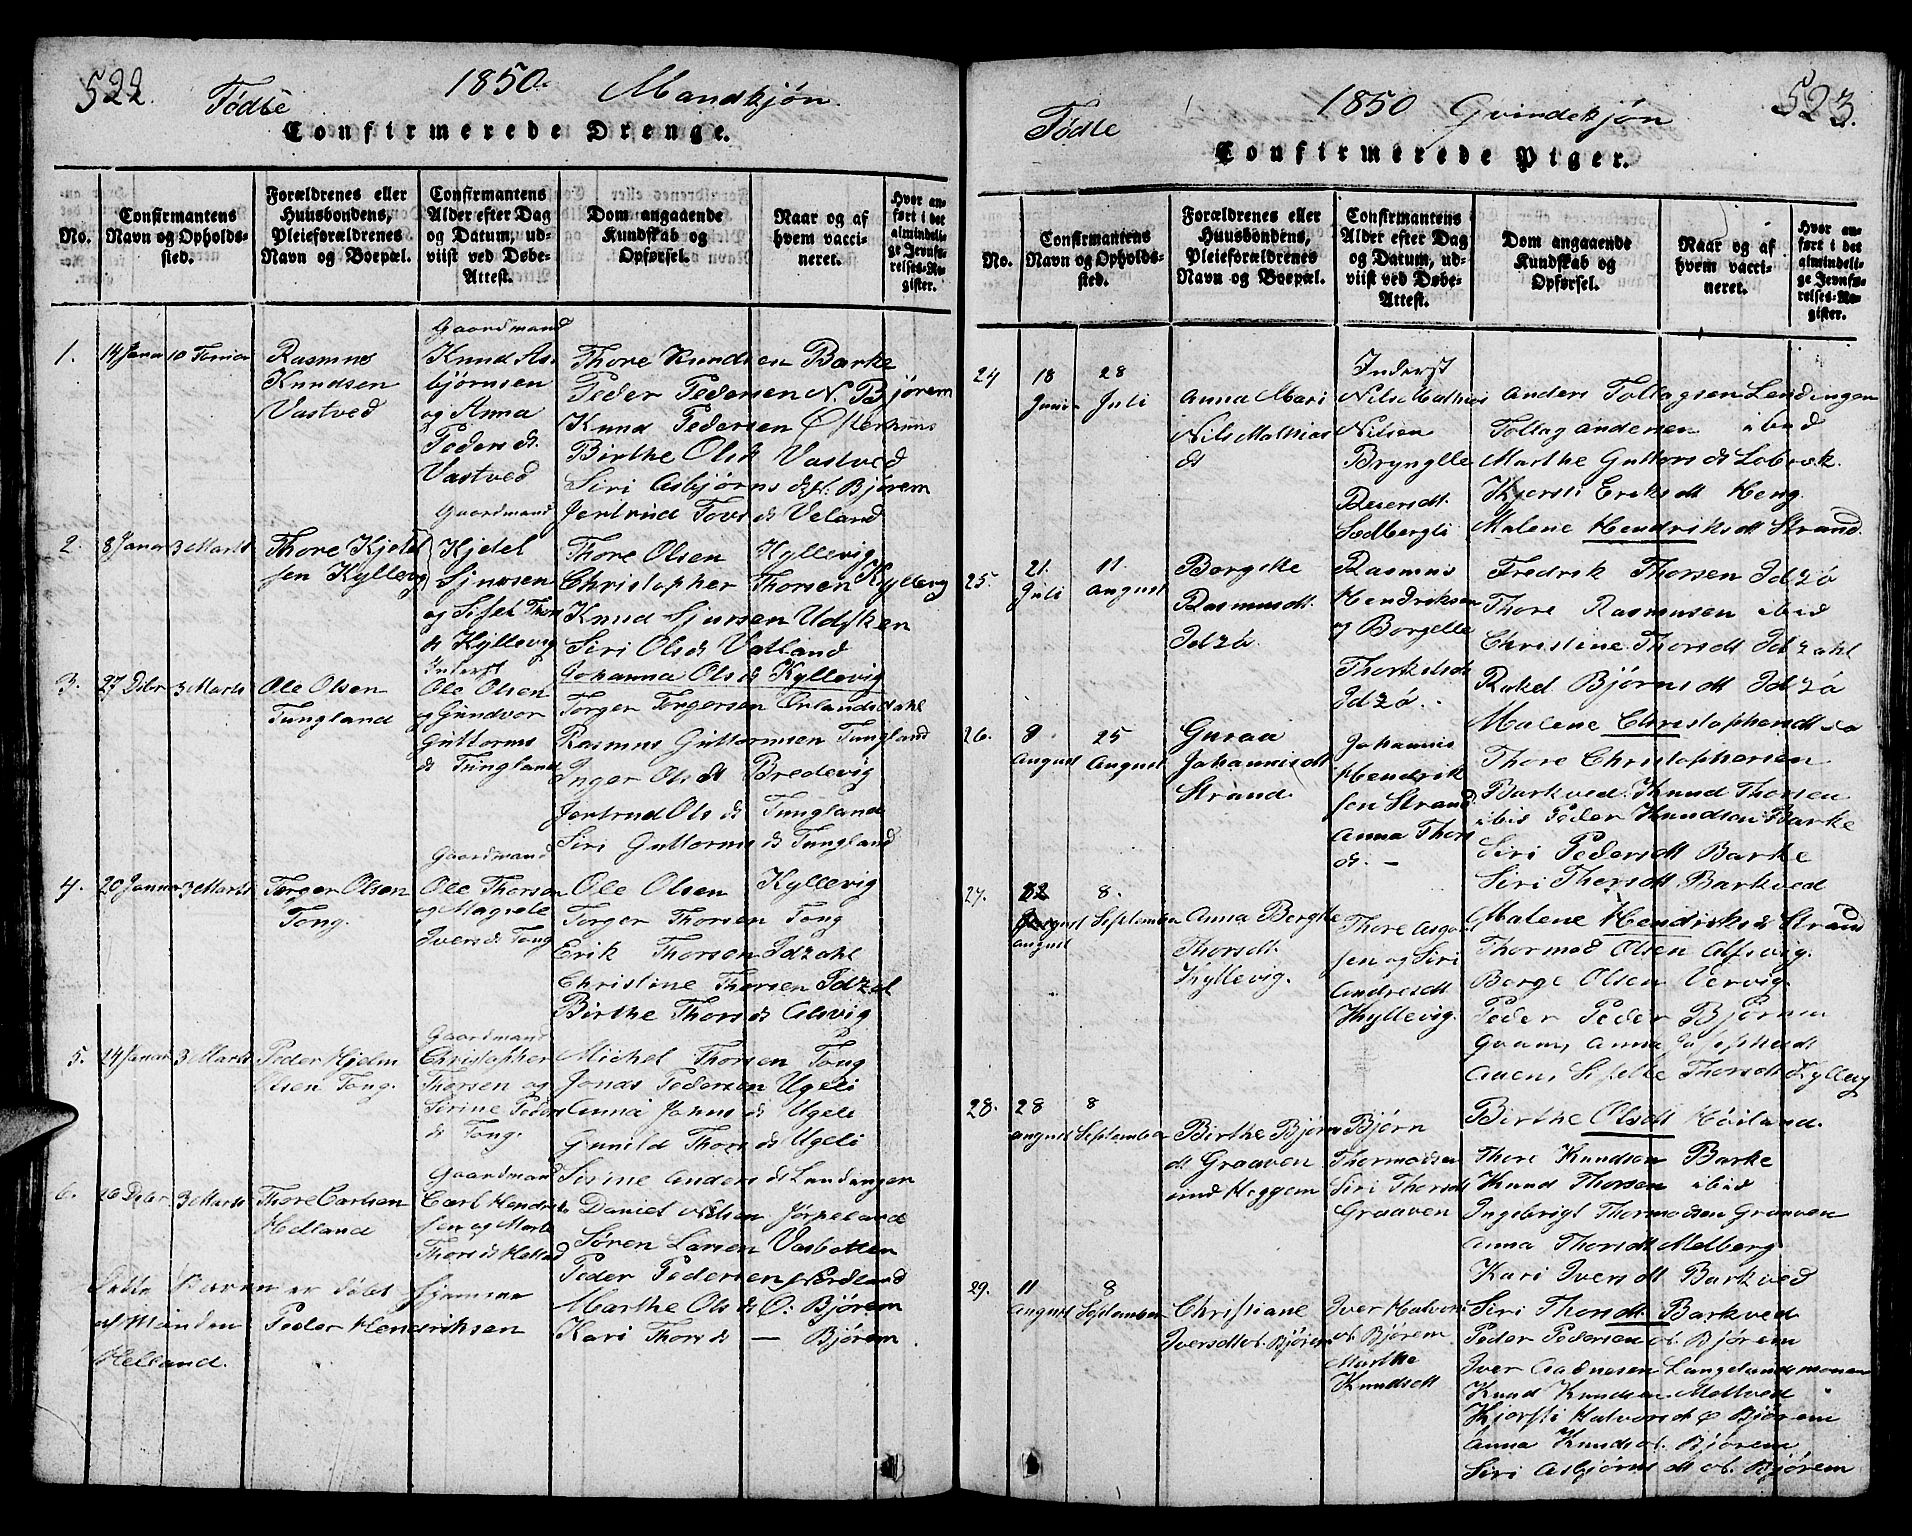 522.
Fødte 1850. Mandkjøn.
Confirmerede Drenge.
No.
Confirmantens Navn og Opholds-sted.
Forældrenes eller Huusbondens, Pleieforældrenes Navn og Boepæl.
Confirmantens Alder efter Dag og Datum, ud-viist ved Døbe-Attest.
Dom angaaende Kundskab og Opførsel.
Naar og af hvem vacci-neret.
Hvor an-ført i det almindeli-ge Jevnfø-relses-Re-gister.
1. 14 Janu 10
Rasmus
Knudsen
Vastved
Gaardmand
Knud As-
bjørnsen
og Anna
Peders dt.
Vastved
Thore Knudsen Barke
Peder Pedersen N. Bjørem
Knud Pedersen
Birthe Olsd Vastved
Siri Asbjørns dt N. Bjørem
Jertrud Tovs d Veland
2. 8 Janua 3 Marts
Thore Kjetel
sen Kyllevig
Gaardmand
Kjetel
Sjursen
og Sisel Thors
dt Kyllevig
Thore Olsen Kyllevig
Christopher Thorsen Kyllevig
Knud Sjursen
Siri Olsd Vatland
Johanna Olsd Kyllevig
3. 27 Dsbr 3 Marts
Ole Olsen
Tungland
Inderst
Ole Olsen
og Gundvor
Guttorms
d Tungland
Torger Torgersen Erlandsdahl
Rasmus Guttormsen Tungland
Inger Olsdt Bredevig
Jertrud Olsd Tungland
Siri Guttormsd Tungland
4. 20 Janua 3 Marts
Torger Olsen
Tong.
Gaardmand
Ole Thorsen
og Magrete
Ivers d Tong
Ole Olsen Kyllevig
Torger Thorsen Tong
Erik Thorsen Idzahl
Christine Thorsen Idzal
Birthe Thors d Alsvig
5. 14 Janua 3 Marts
Peder Hjelm
Olsen Tong.
Gaardmand
Christopher
Thorsen og
Sirine Peders
d Tong.
Michel Thorsen Tong
Jonas Pedersen Ugeli
Anna Jonas d Ugeli
Gunild Thors d Ugeli
Serine Anders d Lundingen
6. 16 Dsbr 3 Marts
Thore Carlsen
Helland
Gaardmand
Carl Hendrik
sen og Marte
Thors d Helland
Daniel Nilsen Jørpeland
Søren Larsen Vasbotten
Peder Pedersen Nordland
Marthe Olsd Ø: Bjørem
Kari Thors d — Bjørem
er døbt hjemme
af Manden Peder Hendriksen
Helland.
523.
Fødte 1850 Qvindekjøn
Confirmerede Piger.
No.
Confirmantens Navn og Opholds-sted.
Forældrenes eller Huusbondens, Pleieforældrenes Navn og Boepæl.
Confirmantens Alder efter Dag og Datum, ud-viist ved Døbe-Attest.
Dom angaaende Kundskab og Opførsel.
Naar og af hvem vacci-neret.
Hvor an-ført i det almindeli-ge Jevnfø-relses-Re-gister.
24 18 28
Juni Juli
Anna Mari
Nils Mathias
dt
Inderst
Nils Mathias
Nilsen
Bryngelle
Reiersdt.
Sedbergli
Anders Tollagsen Lendingen
Tollag Andersen ibid
Marthe Guttorsd Lobræk.
Kjersti Eriksdt Heng.
Malene Hendriksdt Strand.
25. 21. 11.
Juli August
Borgilke
Rasmusdt.
Idzø.
Rasmus
Hendriksen
og Borgelle
Thorkelsdt
Idzø.
Fredrik Thorsen Idzø
Thore Rasmusen ibid
Christine Thorsdt Idzahl
Rakel Bjørnsdt Idzø
Malene Christophersdt
26. 9 25
August August
Guraa
Johannisdt
Strand.
Johannis
Hendrik
sen Strand
Anna Thors
d. —
Thore Christophersen
Barkved. Knud Thorsen
ibid Peder Knudsen Barke
Siri Pedersdt Barke
Siri Thorsdt Barkved
Malene Hendriksd Strand
27. 8.
August September
Anna Bergitte
Thorsdt.
Kyllevig.
Thore
sen og Siri
Andresdt
Kyllevig.
Thormod Olsen Alsvig.
Berge Olsen Vervig.
Peder Peder Bjørem
Graam, Anna Josephsdt
Aaen, Siselle Thorsdt Kyllevig
28. 28 8
August September
Birthe Bjørns
dt Graaven
und Heggem
Bjørn
Thormodsen
Siri Thorsdt
Graaven
Birthe Olsdt Høiland.
Thore Knudsen Barke
Knud Thorsen ibid
Ingebrigt Thormodsen Graaven
Anna Thorsdt Melberg
Kari Iversdt Barkved
29. 11 8
August September
Christiane
Iversdt Ø. Bjørem
Iver Halvors
Ø. Bjørem
Marthe
Knudsdt
Siri Thorsdt Barkved
Peder Pedersen Ø. Bjørem
Iver Aadnesen Langelandsmonen
Knud Knudsen Meltved
Kjersti Halvorsdt Ø Bjørem
Anna Knudsd. Bjørem
Siri Asbjørnsdt Ø. Bjørem